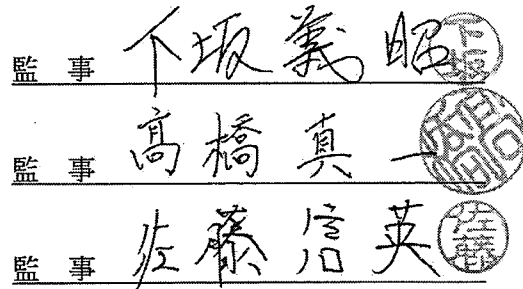 監事 下坂義昭 下坂
監事 髙橋真一 髙橋
監事 佐藤信英 佐藤